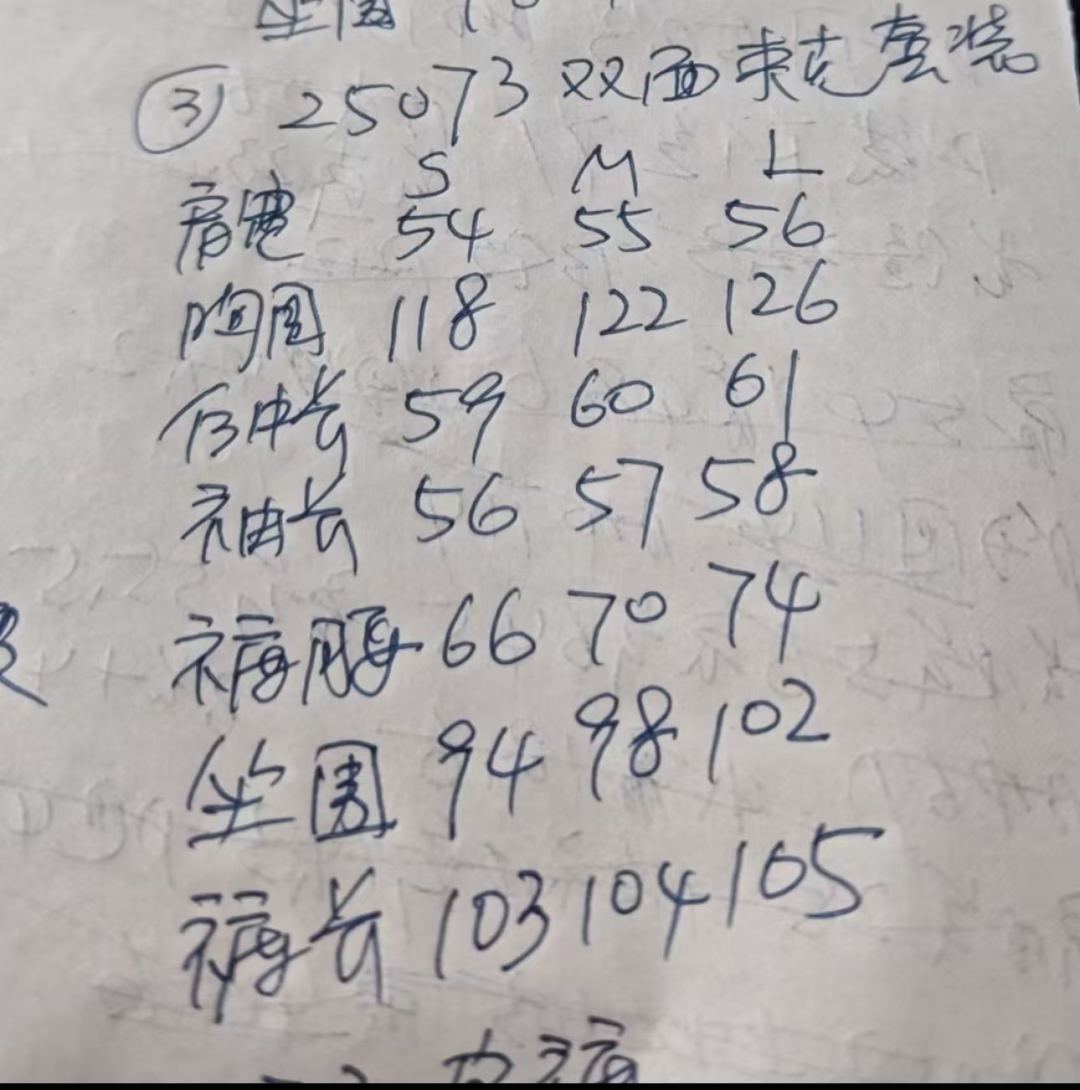 坐围
③ 25073 双面夹克套装
S M L
肩宽 54 55 56
胸围 118 122 126
后中长 59 60 61
袖长 56 57 58
裤腰 66 70 74
坐围 94 98 102
裤长 103 104 105